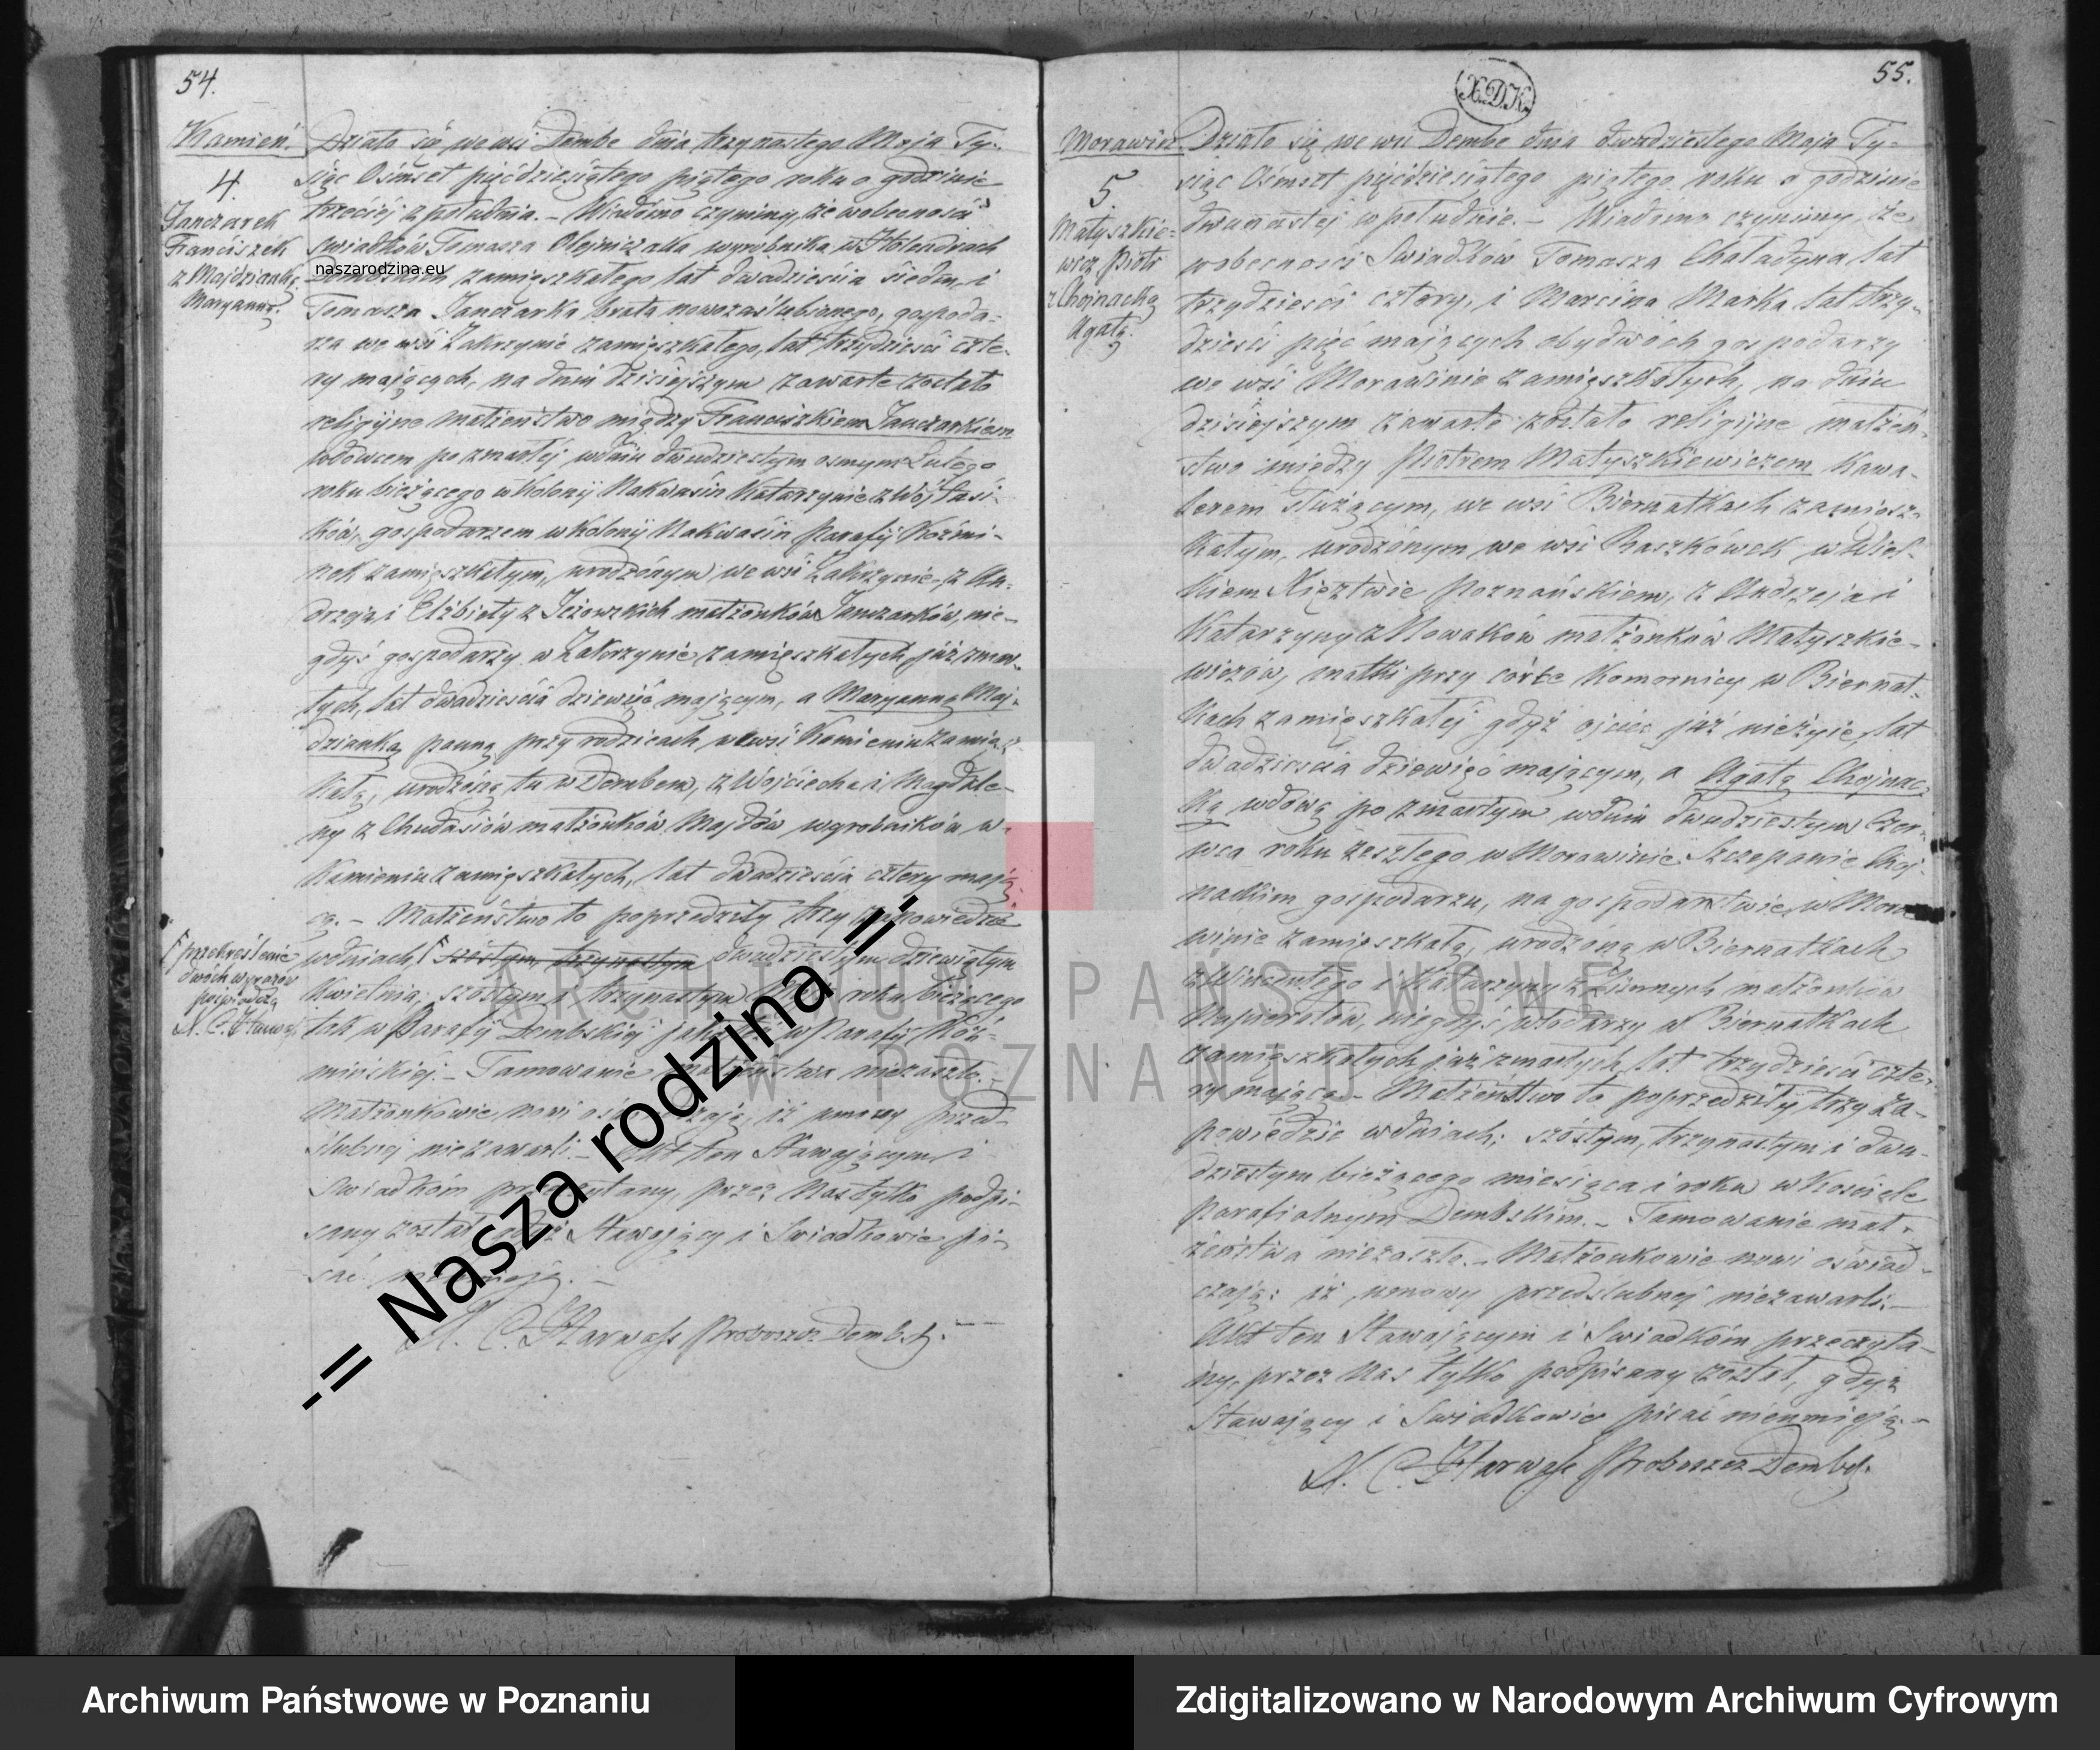 54.
Kamień.
4.
Janczarek
Franciszek
z Majdzianką
Maryanną.
Działo się we wsi Dembe dnia trzynastego Maja Ty-
siąc Ośmset pięćdziesiątego piątego roku o godzinie
trzeciéj z południa. – Wiadomo czynimy, że w obecności
Swiadków Tomasza Olejniczaka wyrobnika w Holendrach
naszarodzina.eu
Dembskich zamięszkałego lat dwadzieścia siedm, i
Tomasza Janczarka brata nowozaślubionego, gospoda-
rza we wsi Zakrzynie zamięszkałego, lat trzydzieści czte-
ry mających, na dniu dzisiejszym zawarte zostało
religijne małżeństwo między Franciszkiem Janczarkiem
wdowcem po zmarłéj w dniu dwudziestym osmym Lutego
roku bieżącego w Kolonij Nakwasin Katarzynie z Wojtasi-
ków, gospodarzem w Kolonij Nakwasin Parafij Koźmi-
nek zamięszkałym, urodzonym we wsi Zakrzynie, z An-
drzeja i Elżbiety z Jeżowskich małżonków Janczarków, nie-
gdyś gospodarzy w Zakrzynie zamięszkałych już zmar-
łych, lat dwadzieścia dziewięć mającym, a Maryanną Maj-
dzianką panną przy rodzicach we wsi Kamieniu zamięsz-
kałą, urodzoną tu w Dembem, z Wojciecha i Magdale-
ny z Chudasiów małżonków Majdów wyrobników w
Kamieniu zamięszkałych, lat dwadzieścia cztery mają-
cą. – Małżeństwo to poprzedziły trzy zapowiedzie
w dniach, szóstym, trzynastym dwudziestym dziewiątym
przekreślenie
dwóch wyrazów
poświadcza
Kwietnia, szóstym i trzynastym roku bieżącego
tak w Parafij Dembskiéj jako w Parafij Koź-
minskiéj. – Tamowanie małżeństwa niezaszło. –
Małżonkowie nowi iż umowy przed-
ślubnéj niezawarli. – Akt ten Stawającym i
Swiadkom przeczytany, przez Nas tylko podpi-
sany został, gdyż Stawający i Swiadkowie pi-
sać nieumieją. –
X. C. Harwass Proboszcz Dembsk.
55.
X.D.K.
Morawin.
5.
Matyszkie-
wicz Piotr
z Chojnacką
Agatą.
Działo się we wsi Dembe dnia dwudziestego Maja Ty-
siąc Ośmset pięćdziesiątego piątego roku o godzinie
dwunastéj w południe. – Wiadomo czynimy, że
w obecności Swiadków Tomasza Chaładyna lat
trzydzieści cztery, i Marcina Marka lat trzy-
dzieści pięć mających obydwóch gospodarzy
we wsi Morawinie zamięszkałych, na dniu
dzisiejszym zawarte zostało religijne małżeń-
stwo między Piotrem Matyszkiewiczem Kawa-
lerem służącym, we wsi Biernatkach zamiesz-
kałym, urodzonym we wsi Raszkówek w Wiel-
kiem Xięztwie Poznańskiem, z Andrzeja i
Katarzyny z Nowaków małżonków Matyszkie-
wiczów, matki przy córce Komornicy w Biernat-
kach zamięszkałéj gdyż ojciec już nieżyje, lat
dwadzieścia dziewięć mającym, a Agatą Chojnac-
ką wdową po zmarłym w dniu dwudziestym Czer-
wca roku zeszłego w Morawinie Szczepanie Choj-
nackim gospodarzu, na gospodarstwie w Mora-
winie zamięszkałą, urodzoną w Biernatkach
z Wincentego i Katarzyny z małżonków
niegdyś w Biernatkach
zamięszkałych już zmarłych, lat trzydzieści czte-
ry mającą. – Małżeństwo to poprzedziły trzy za-
powiedzie w dniach; szóstym, trzynastym i dwu-
dziestym bieżącego miesiąca i roku w Kościele
Parafialnym Dembskim. – Tamowanie mał-
żeństwa niezaszło. – Małżonkowie nowi oświad-
czają: iż umowy przedślubnéj niezawarli. –
Akt ten Stawającym i Swiadkom przeczyta-
ny, przez Nas tylko podpisany został, gdyż
Stawający i Swiadkowie pisać nieumieją. –
X. C. Harwass Proboszcz Dembsk.
-= Nasza rodzina =-
ARCHIWUM PAŃSTWOWE
W POZNANIU
Archiwum Państwowe w Poznaniu
Zdigitalizowano w Narodowym Archiwum Cyfrowym